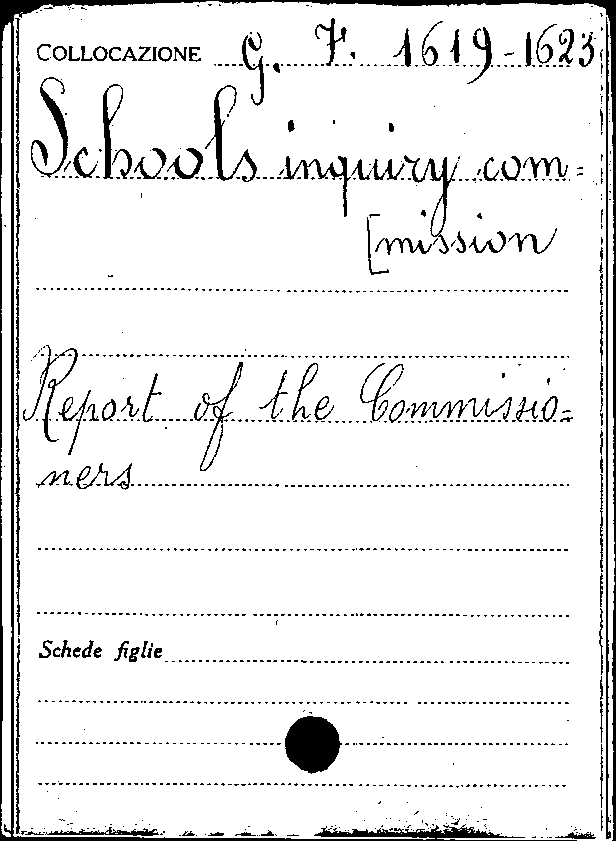 COLLOCAZIONE G. F. 1619-1623
Schools inquiry com=
[mission
Report of the Commissio=
ners
Schede figlie